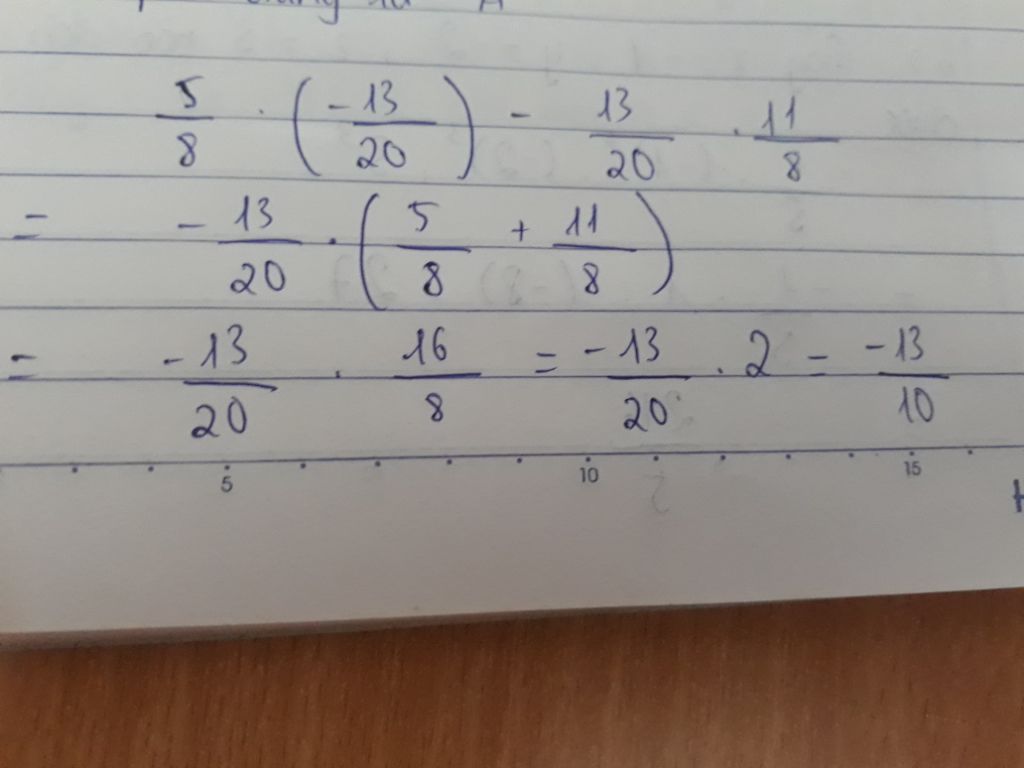 A
5/8 · (-13/20) - 13/20 · 11/8
= -13/20 · (5/8 + 11/8)
= -13/20 · 16/8 = -13/20 · 2 = -13/10
5 10 15